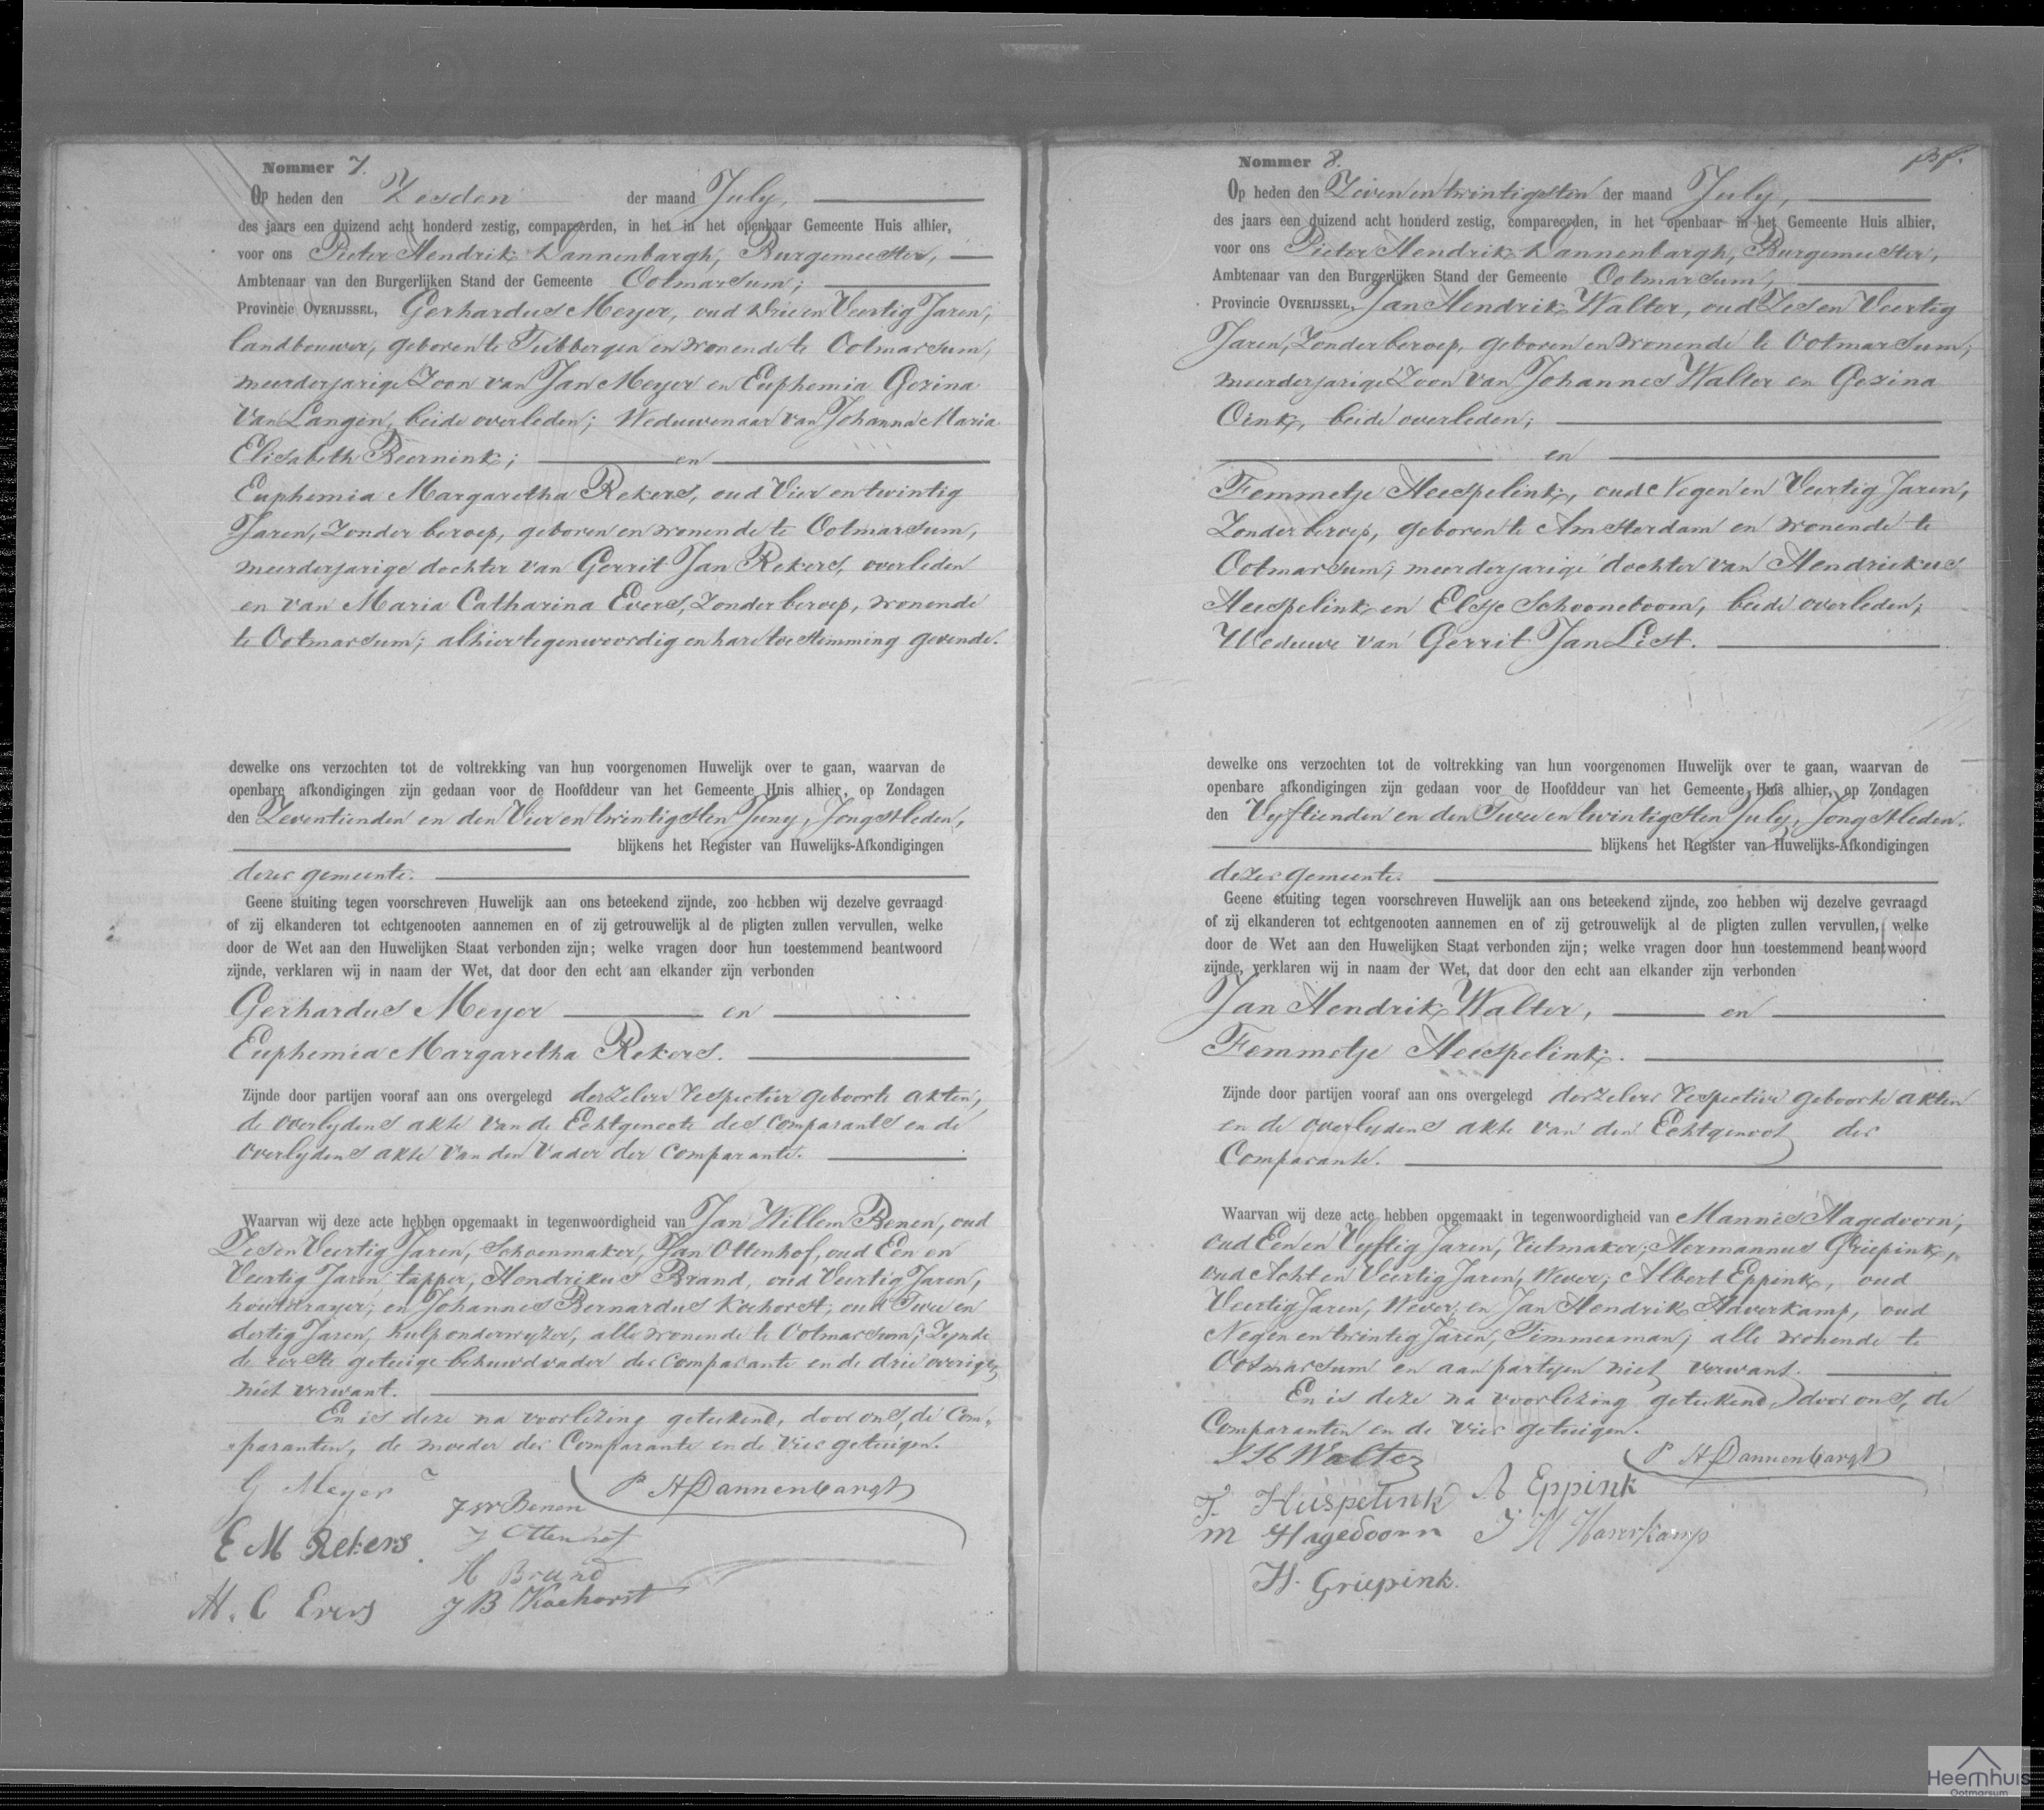 Nommer 7.
Op heden den Zesden der maand July,
des jaars een duizend acht honderd zestig, compareerden, in het in het openbaar Gemeente Huis alhier,
voor ons Pieter Hendrik Dannenbargh, Burgemeester,
Ambtenaar van den Burgerlijken Stand der Gemeente Ootmarsum;
Provincie OVERIJSSEL, Gerhardus Meyer, oud Drie en Veertig Jaren,
landbouwer, geboren te Tubbergen en wonende te Ootmarsum,
meerderjarige Zoon van Jan Meyer en Euphemia Gezina
van Langen, beide overleden; Weduwenaar van Johanna Maria
Elisabeth Beernink; en
Euphemia Margaretha Rekers, oud Vier en twintig
Jaren, Zonder beroep, geboren en wonende te Ootmarsum,
meerderjarige dochter van Gerrit Jan Rekers, overleden
en van Maria Catharina Evers, Zonder beroep, wonende
te Ootmarsum; alhier tegenwoordig en hare toestemming gevende.
dewelke ons verzochten tot de voltrekking van hun voorgenomen Huwelijk over te gaan, waarvan de
openbare afkondigingen zijn gedaan voor de Hoofddeur van het Gemeente Huis alhier, op Zondagen
den Zeventienden en den Vier en twintigsten Juny, Jongstleden,
blijkens het Register van Huwelijks-Afkondigingen
dezer gemeente.
Geene stuiting tegen voorschreven Huwelijk aan ons beteekend zijnde, zoo hebben wij dezelve gevraagd
of zij elkanderen tot echtgenooten aannemen en of zij getrouwelijk al de pligten zullen vervullen, welke
door de Wet aan den Huwelijken Staat verbonden zijn; welke vragen door hun toestemmend beantwoord
zijnde, verklaren wij in naam der Wet, dat door den echt aan elkander zijn verbonden
Gerhardus Meyer en
Euphemia Margaretha Rekers.
Zijnde door partijen vooraf aan ons overgelegd derzelver respective geboorte akten,
de overlydens akte van de Echtgenoote des Comparants en de
overlydens akte van den Vader der Comparante.
Waarvan wij deze acte hebben opgemaakt in tegenwoordigheid van Jan Willem Benen, oud
Zes en Veertig Jaren, Schoenmaker, Jan Ottenhof, oud Een en
Veertig Jaren, tapper, Hendrikus Brand, oud Veertig Jaren,
houtdrayer; en Johannes Bernardus Koehorst, oud Twee en
dertig Jaren, hulponderwyzer, alle wonende te Ootmarsum; Zynde
de eerste getuige behuwdvader der Comparante en de drie overige
niet verwant.
En is deze na voorlezing geteekend, door ons, de Com-
paranten, de moeder der Comparante en de vier getuigen.
G Meyer
P H Dannenbargh
J W Benen
E M Rekers
J Ottenhof
H Brand
M. C Evers
J B Koehorst
Nommer 8.
Op heden den Zeven en twintigsten der maand July,
des jaars een duizend acht honderd zestig, compareerden, in het openbaar in het Gemeente Huis alhier,
voor ons Pieter Hendrik Dannenbargh, Burgemeester,
Ambtenaar van den Burgerlijken Stand der Gemeente Ootmarsum,
Provincie OVERIJSSEL, Jan Hendrik Walter, oud Zes en Veertig
Jaren, Zonder beroep, geboren en wonende te Ootmarsum,
meerderjarige Zoon van Johannes Walter en Gezina
Oink, beide overleden;
en
Femmetje Heespelink, oud Negen en Veertig Jaren,
Zonder beroep, geboren te Amsterdam en wonende te
Ootmarsum; meerderjarige dochter van Hendriekus
Heespelink en Elsje Schooneboom, beide overleden;
Weduwe van Gerrit Jan List.
dewelke ons verzochten tot de voltrekking van hun voorgenomen Huwelijk over te gaan, waarvan de
openbare afkondigingen zijn gedaan voor de Hoofddeur van het Gemeente Huis alhier, op Zondagen
den Vyftienden en den Twee en twintigsten July, Jongstleden.
blijkens het Register van Huwelijks-Afkondigingen
dezer gemeente.
Geene stuiting tegen voorschreven Huwelijk aan ons beteekend zijnde, zoo hebben wij dezelve gevraagd
of zij elkanderen tot echtgenooten aannemen en of zij getrouwelijk al de pligten zullen vervullen, welke
door de Wet aan den Huwelijken Staat verbonden zijn; welke vragen door hun toestemmend beantwoord
zijnde, verklaren wij in naam der Wet, dat door den echt aan elkander zijn verbonden
Jan Hendrik Walter, en
Femmetje Heespelink.
Zijnde door partijen vooraf aan ons overgelegd derzelver respective geboorte akten
en de overlydens akte van den Echtgenoot der
Comparante.
Waarvan wij deze acte hebben opgemaakt in tegenwoordigheid van Mannes Hagedoorn,
oud Een en Vyftig Jaren, Rietmaker; Hermannus Griepink,
oud Acht en Veertig Jaren, Wever; Albert Eppink, oud
Veertig Jaren, Wever, en Jan Hendrik Haverkamp, oud
Negen en twintig Jaren, Timmerman; alle wonende te
Ootmarsum en aan partyen niet verwant.
En is deze na voorlezing geteekend, door ons, de
Comparanten en de vier getuigen.
J H Walter
P H Dannenbargh
F. Huspelink
A Eppink
M Hagedoorn
J H Haverkamp
H. Griepink.
Heemhuis
Ootmarsum